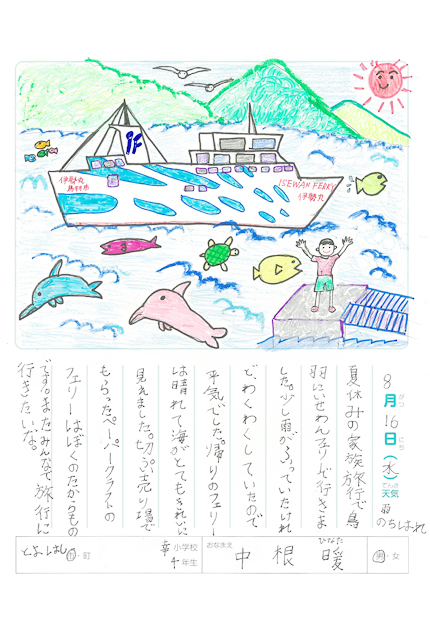 iF
伊勢丸
鳥羽市
ISEWAN FERRY
伊勢丸
8月16日(水)
がつ
にち
てんき
天気
雨のちはれ
夏休みの家族旅行で鳥
羽にいせわんフェリーで行きま
した。少し雨がふっていたけれ
ど、わくわくしていたので
平気でした。帰りのフェリー
は晴れて海がとてもきれいに
見えました。切ぷ売り場で
もらったペーパークラフトの
フェリーはぼくのたからもの
です。またみんなで旅行に
行きたいな。
とよはし市・町
幸小学校
4年生
おなまえ
ひなた
中根 暖
男・女